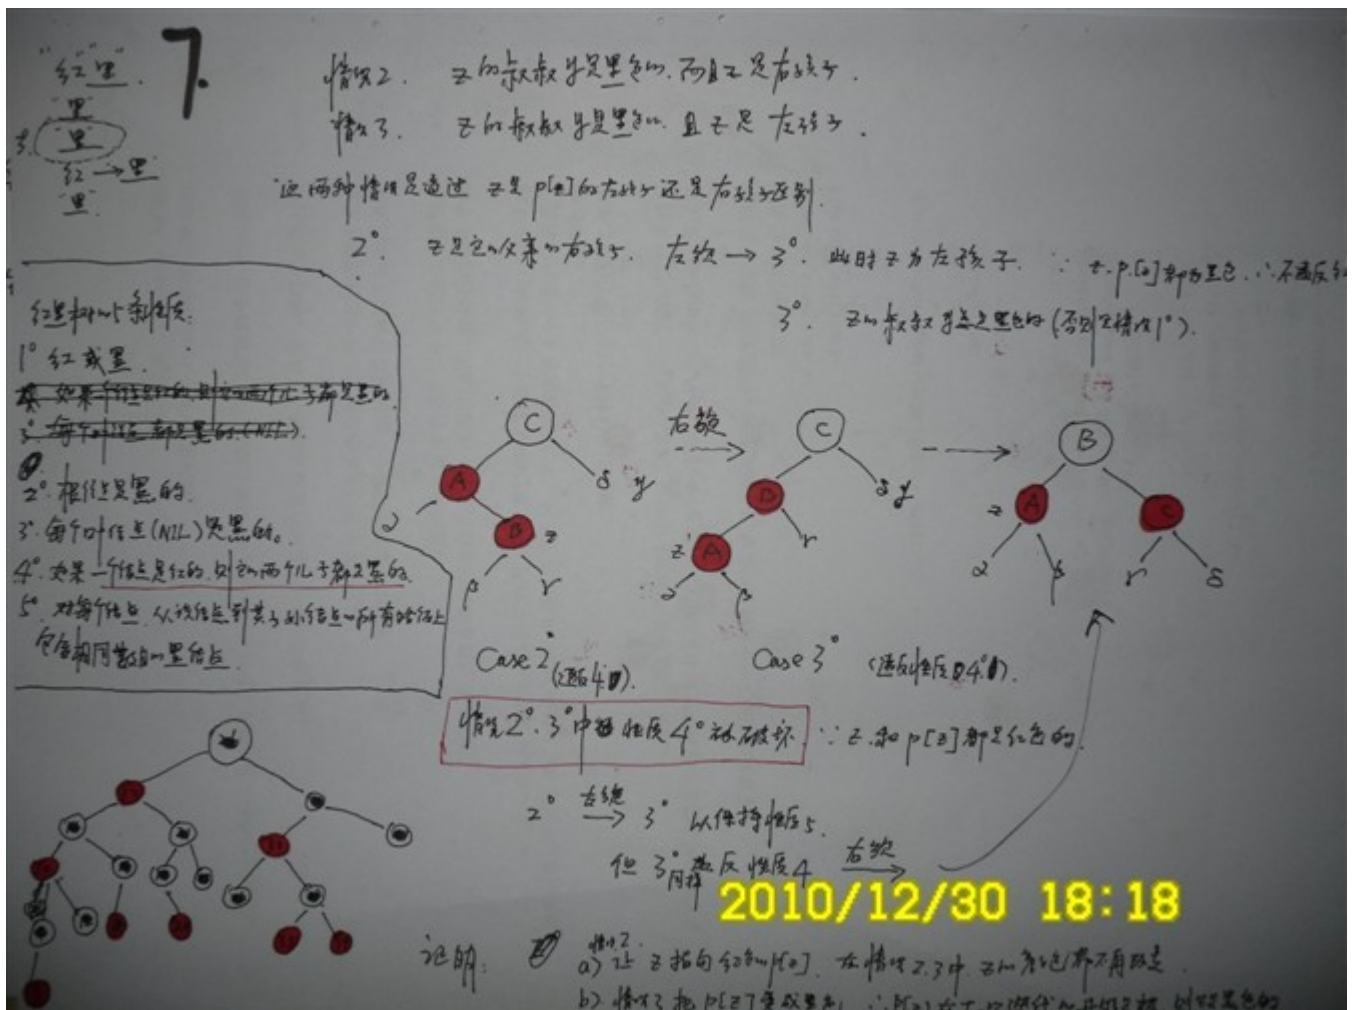 7.
"红" "黑".
"黑"
"黑"
红 → 黑
黑
情况2. z的叔叔y是黑色的,而且z是右孩子.
情况3. z的叔叔y是黑色的,且z是左孩子.
这两种情况是通过 z是p[z]的左孩子还是右孩子区别.
2°. z是它的父亲的右孩子. 左旋 → 3°. 此时z为左孩子. ∵ z.p[z]都为 色. ∴不违反
3°. z的叔叔y总是黑色的(否则是情况1°).
红黑树的5条性质:
1° 红或黑.
如果一个结点是红的,则它的两个儿子都是黑的.
3° 每个叶结点都是黑的.(NIL).
2°. 根结点是黑的.
3°. 每个叶结点(NIL)是黑的。
4°. 如果一个结点是红的,则它的两个儿子都是黑的.
5°. 对每个结点,从该结点到其子孙结点的所有路径上
包含相同数目的黑结点.
C
A
α
δ y
B z
β γ
右旋
C
B
δ y
z A
γ
α β
B
z A
C
α β γ δ
Case 2° (违反4°).
Case 3° (违反性质4°).
情况2°.3°中 性质4°被破坏 ∵ z.和p[z]都是红色的.
2° 左旋 → 3° 以保持性质5.
但3°同样违反性质4 右旋 →
2010/12/30 18:18
证明:
情况2
a) 让z指向红色的p[z]. 在情况2.3中. z的颜色都不再改变.
b) 情况3把p[z]变成黑色,